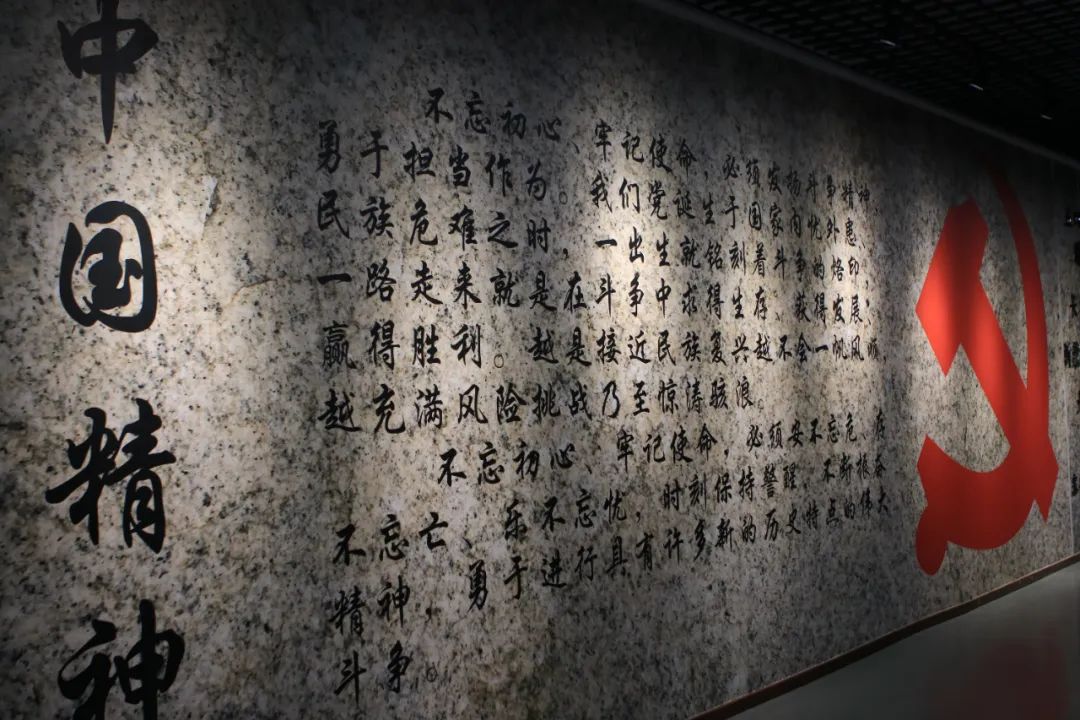 中国精神
不忘初心、牢记使命,必须发扬斗争精神,
勇于担当作为。我们党诞生于国家内忧外患、
民族危难之时,一出生就铭刻着斗争的烙印,
一路走来就是在斗争中求得生存、获得发展、
赢得胜利。越是接近民族复兴越不会一帆风顺,
越充满风险挑战乃至惊涛骇浪。
不忘初心、牢记使命,必须安不忘危、存
不忘亡、乐不忘忧,时刻保持警醒,不断振奋
精神,勇于进行具有许多新的历史特点的伟大
斗争。